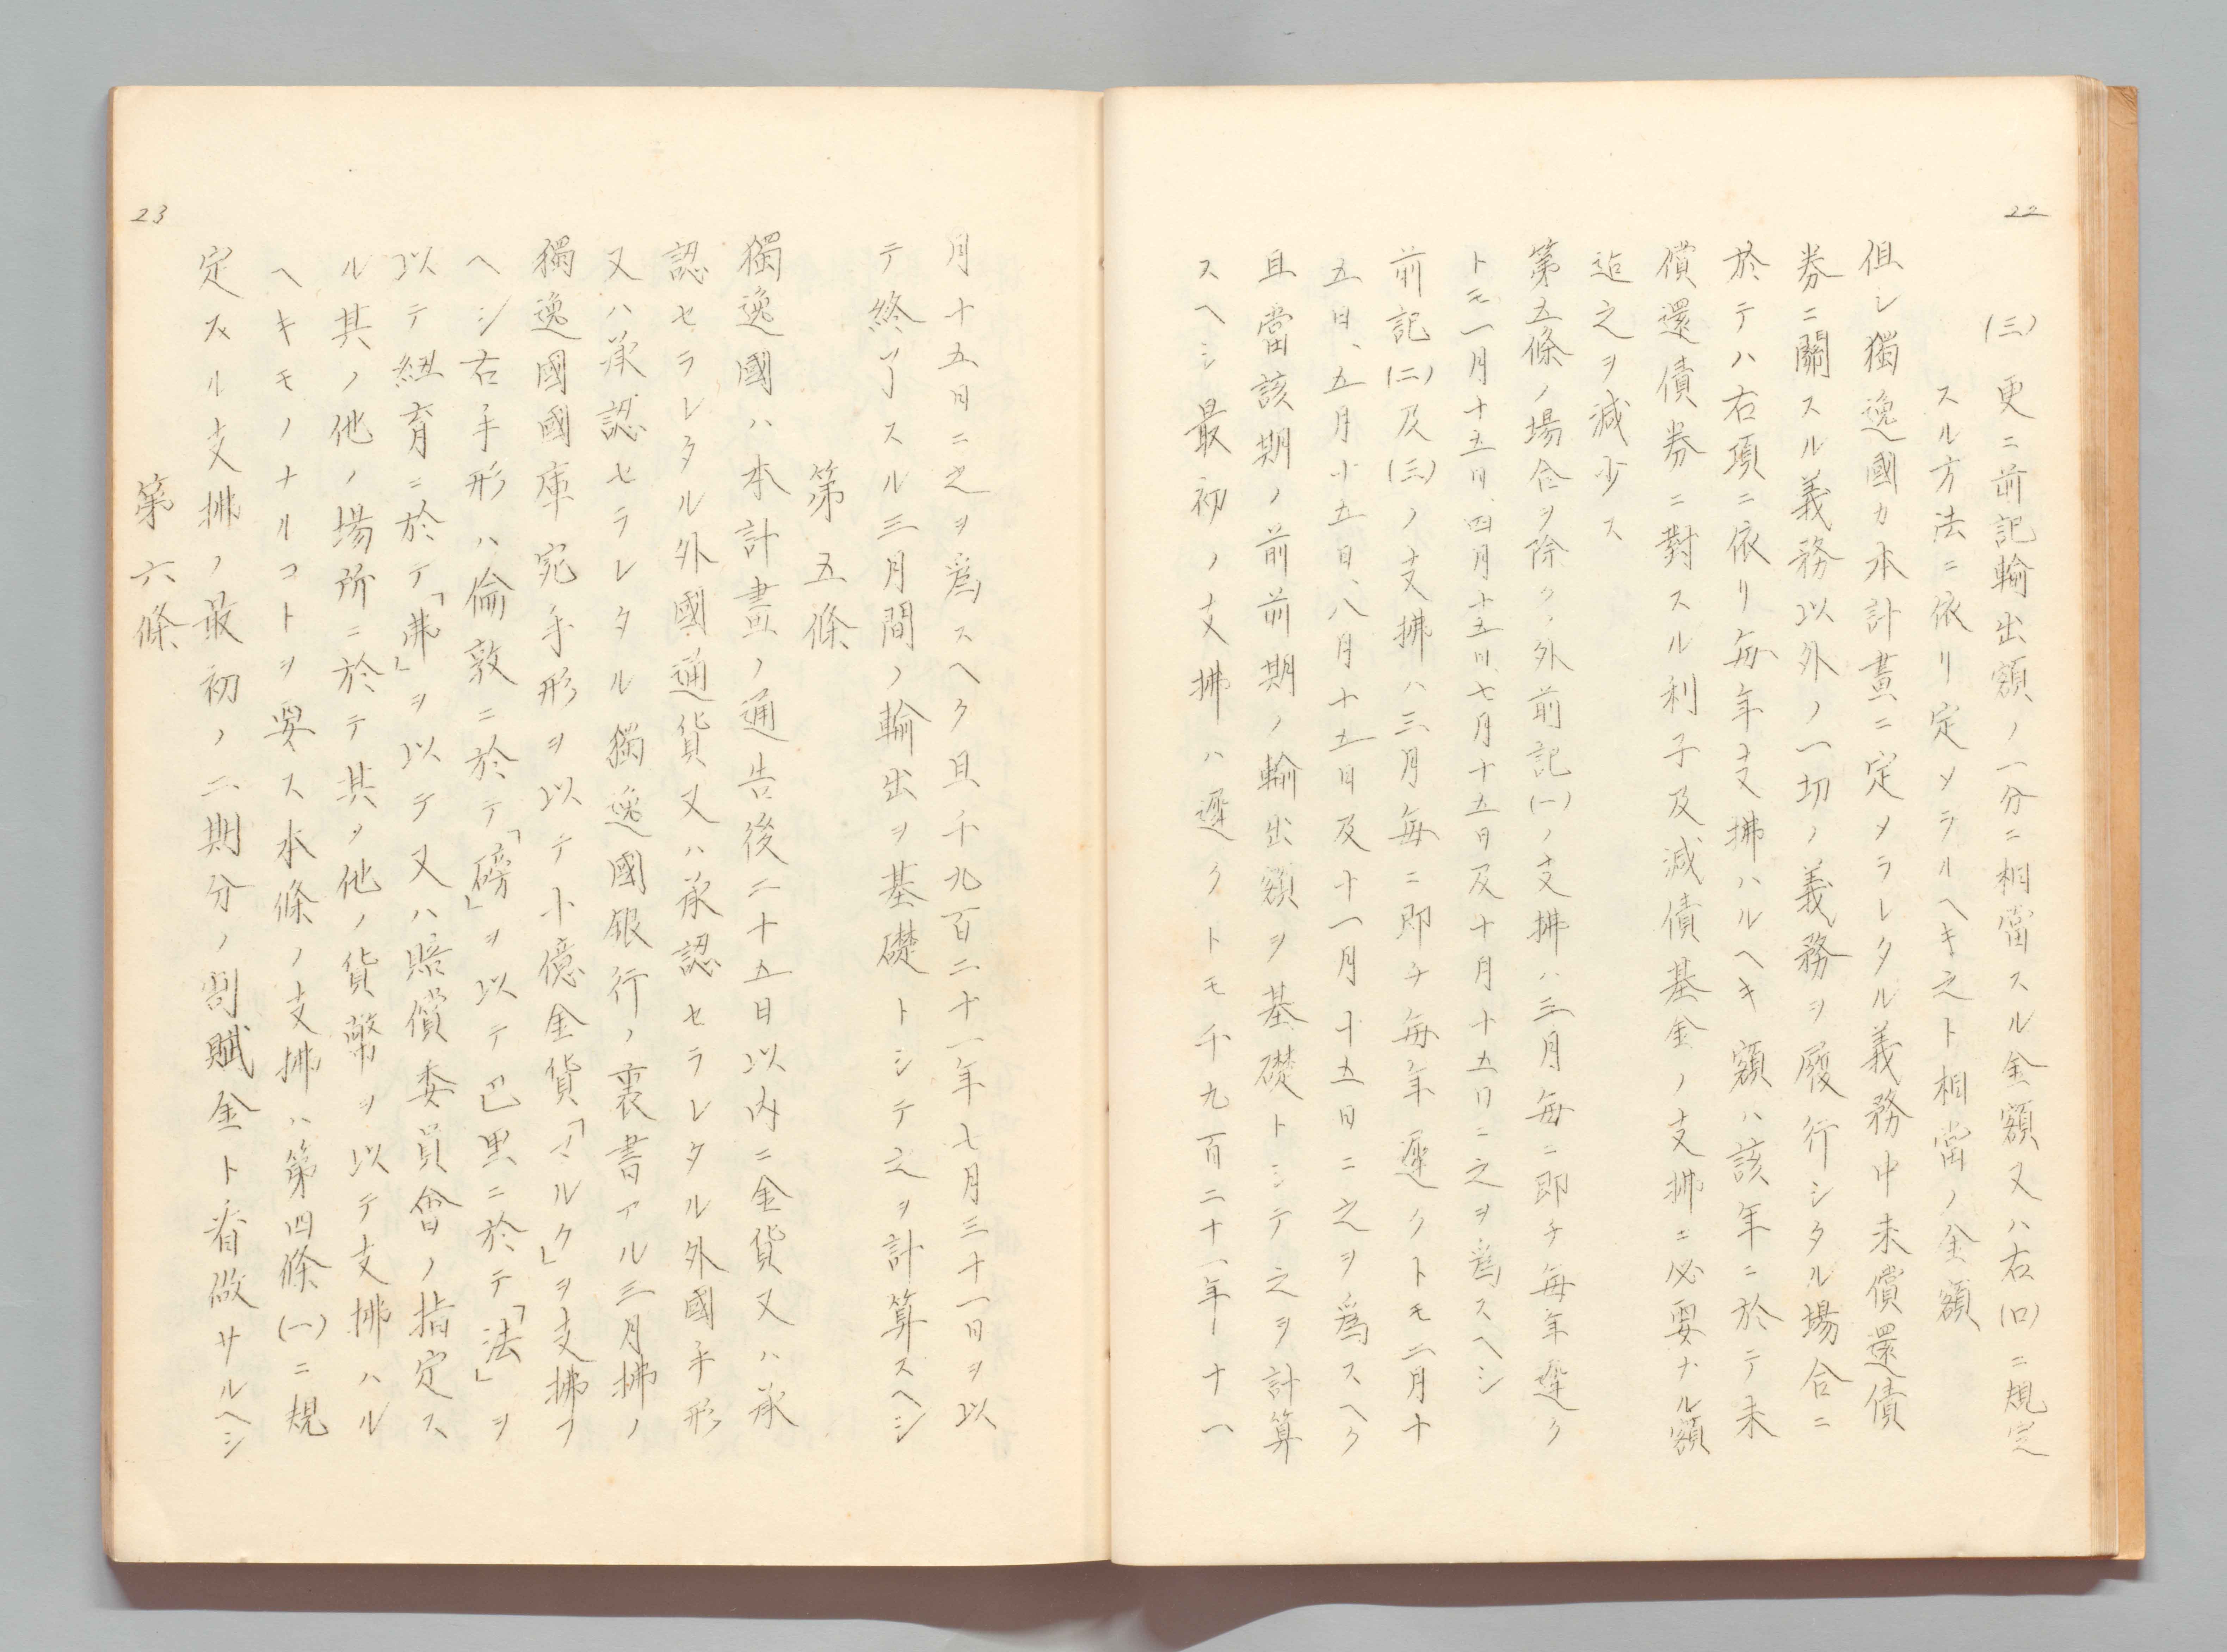 22
(三) 更ニ前記輸出額ノ一分ニ相當スル金額又ハ右(ロ)ニ規定
スル方法ニ依リ定メラルヘキ之ト相當ノ金額
但シ獨逸國カ本計畫ニ定メラレタル義務中未償還債
券ニ關スル義務以外ノ一切ノ義務ヲ履行シタル場合ニ
於テハ右項ニ依リ毎年支拂ハルヘキ額ハ該年ニ於テ未
償還債券ニ對スル利子及減債基金ノ支拂ニ必要ナル額
迠之ヲ減少ス
第五條ノ場合ヲ除クノ外前記(一)ノ支拂ハ三月毎ニ即チ毎年遲ク
トモ一月十五日、四月十五日、七月十五日及十月十五日ニ之ヲ爲スヘシ
前記(二)及(三)ノ支拂ハ三月毎ニ即チ毎年遲クトモ二月十
五日、五月十五日、八月十五日及十一月十五日ニ之ヲ爲スヘク
且當該期ノ前前期ノ輸出額ヲ基礎トシテ之ヲ計算
スヘシ最初ノ支拂ハ遲クトモ千九百二十一年十一
月十五日ニ之ヲ爲スヘク且千九百二十一年七月三十一日ヲ以
テ終了スル三月間ノ輸出ヲ基礎トシテ之ヲ計算スヘシ
第五條
獨逸國ハ本計畫ノ通告後二十五日以內ニ金貨又ハ承
認セラレタル外國通貨又ハ承認セラレタル外國手形
又ハ承認セラレタル獨逸國銀行ノ裏書アル三月拂ノ
獨逸國國庫宛手形ヲ以テ十億金貨「マルク」ヲ支拂フ
ヘシ右手形ハ倫敦ニ於テ「磅」ヲ以テ巴里ニ於テ「法」ヲ
以テ紐育ニ於テ「弗」ヲ以テ又ハ賠償委員會ノ指定ス
ル其ノ他ノ場所ニ於テ其ノ他ノ貨幣ヲ以テ支拂ハル
ヘキモノナルコトヲ要ス本條ノ支拂ハ第四條(一)ニ規
定スル支拂ノ最初ノ二期分ノ割賦金ト看做サルヘシ
第六條
23